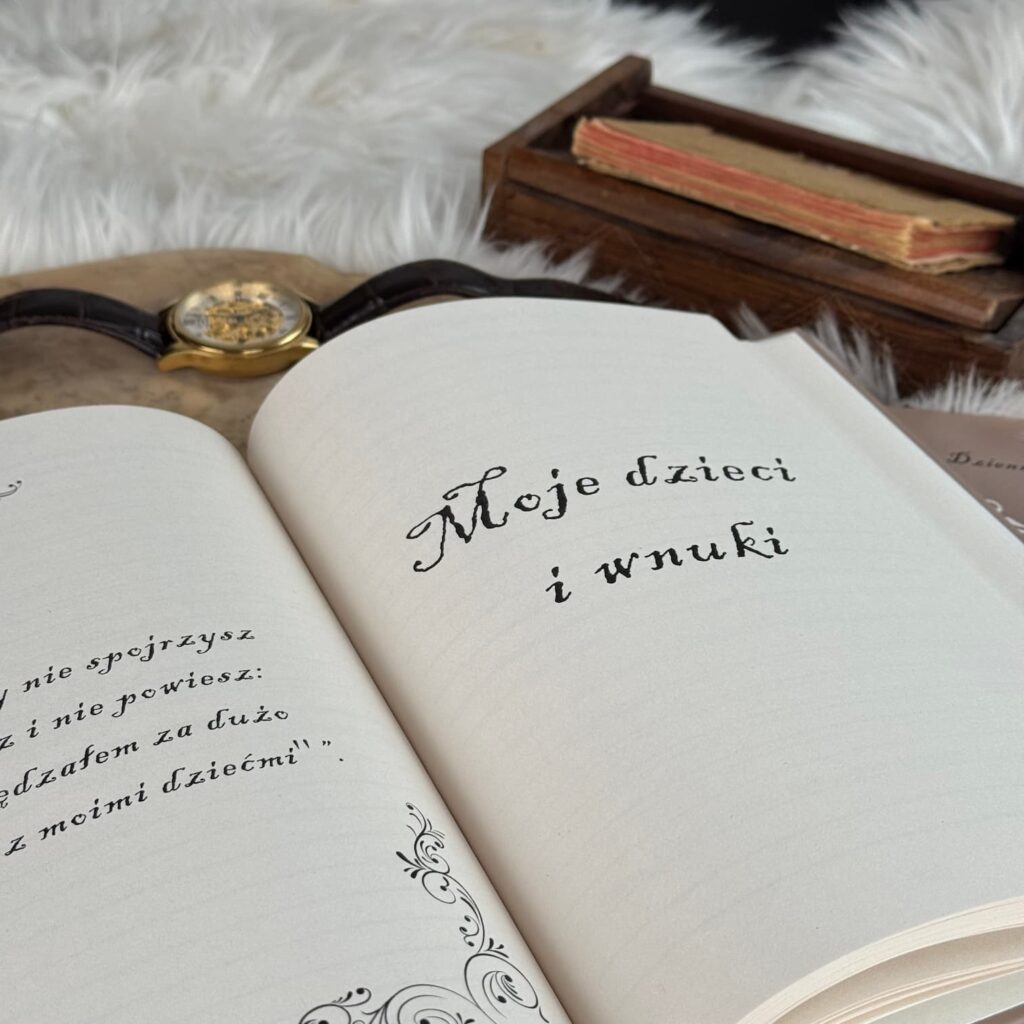 nie spojrzysz
i nie powiesz:
za dużo
z moimi dziećmi" ".
Moje dzieci
i wnuki